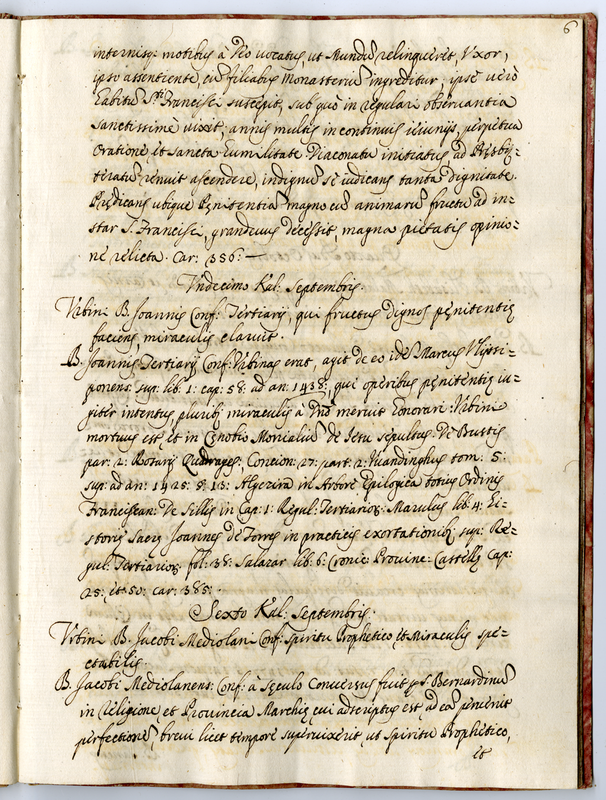 6
internisq; motibus à Deo vocatus, ut Mundũ relinqueret, Vxor,
ipso assentiente, cũ filiabus Monasteriũ ingreditur; ipse verò
habitũ Sti Francisci suscepit, sub quo in regulari observantia
sanctissimè vixit; annis multis in continuis ieiunijs, perpetua
oratione et sancta humilitate Diaconatu initiatus ad Pręsbÿ-
teratũ renuit ascendere, indignũ se iudicans tanta dignitate.
Prędicans ubique Pęnitentiã magno cũ animarũ fructu ad in-
star S. Francisci, grandęuus decessit, magna pietatis opinio-
ne relicta. Car: 356. —
Vndecimo Kal: Septembris.
Vrbini B. Joannis Conf: Tertiarij, qui fructus dignos pęnitentię
faciens, miraculis claruit.
B. Joannis Tertiarij Conf: Vrbinas erat, agit de eo idẽ Marcus Vlyssi-
ponens: sup: lib: 1: cap: 58: ad an: 1438:, qui operibus pęnitentię iu-
giter intentus, pluribꝰ miraculis à Dño meruit honorari. Vrbini
mortuus est, et in Cęnobio Monialiũ de Jesu sepultus. De Bustis
par: 2: Rosarij Quadrages: Concion: 27: part: 2: Vuandinghus tom: 5:
sup: ad an: 1425: §. 15: Algezira in Arbore Epilogica totius Ordinis
Franciscan: De Sillis in Cap: 1: Regul: Tertiarior: Marulus lib: 4: Hi-
storię Sacrę Joannes de Torres in practicis exortationibꝰ sup: Re-
gul: Tertiarior: fol: 38: Salazar lib: 6: Cronic: Prouinc: Castellę Cap:
25: et 50: car: 385: .
Sexto Kal: Septembris.
Vrbini B. Jacobi Mediolani Conf: Spiritu Prophetico et Miraculis spe-
ctabilis.
B. Jacobi Mediolanens: Conf: à Sęculo Conversus fuit p S. Bernardinũ
in Religione, et Prouincia Marchię, cui adscriptus est ad eã peruenit
perfectionẽ, brevi licet tempore superuixerit, ut Spiritu Prophetico,
et